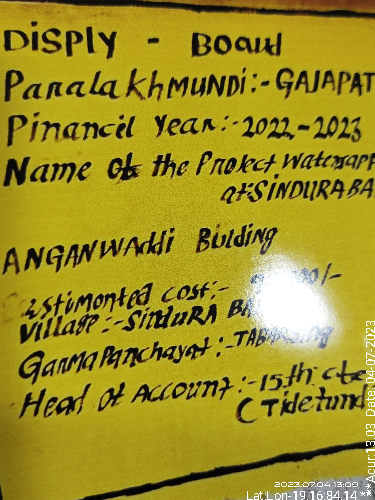 Disply - Board
ParalakhMUNDi:- GAJAPAT
Pinancil Year:- 2022-2023
Name Of the Project Watersapp
at SINDURABA
ANGANWAddi Bulding
Estimonted Cost:- 000/-
Village:- SinduRA BA
GarmaPanchayat:- TABA
Head Of Account:- 15th
( Tidefund
2023.07.04 13:09
Lat Lon-19,16:84,14 **
Acur:13.03 Date:04-07-2023